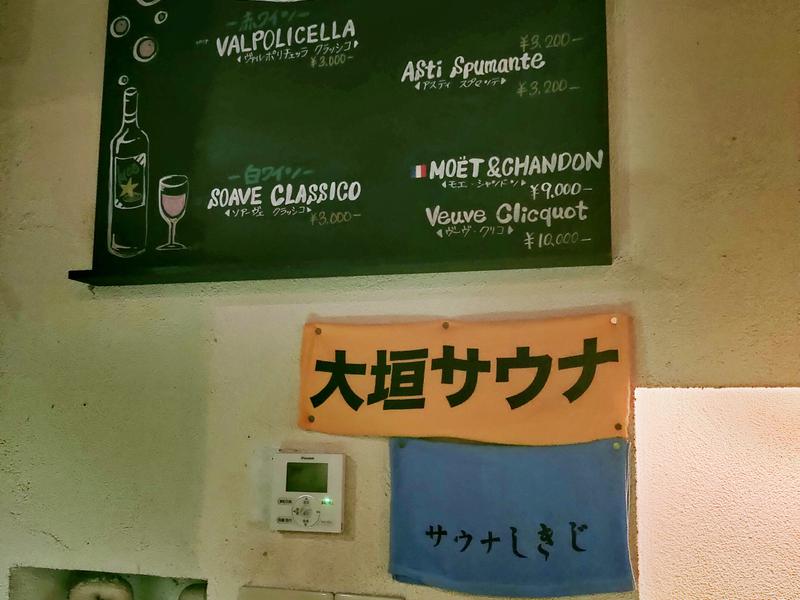 -赤ワイン-
VALPOLICELLA
◀ヴァルポリチェッラ クラッシコ▶
¥3,000-
-白ワイン-
SOAVE CLASSICO
◀ソアーヴェ クラッシコ▶
¥3,000-
¥3,200-
ASti Spumante
◀アスティ スプマンテ▶
¥3,200-
MOËT & CHANDON
◀モエ・シャンドン▶
¥9,000-
Veuve Clicquot
◀ヴーヴ・クリコ▶
¥10,000-
大垣サウナ
サウナしきじ